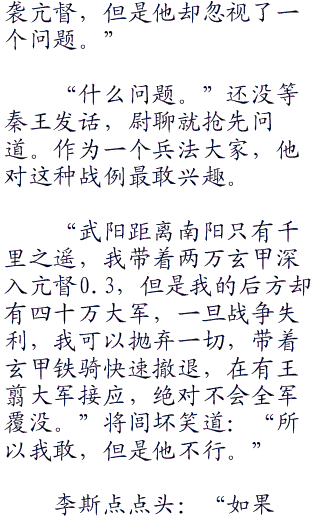 袭亢督，但是他却忽视了一
个问题。”
“什么问题。”还没等
秦王发话，尉聊就抢先问
道。作为一个兵法大家，他
对这种战例最敢兴趣。
“武阳距离南阳只有千
里之遥，我带着两万玄甲深
入亢督0.3，但是我的后方却
有四十万大军，一旦战争失
利，我可以抛弃一切，带着
玄甲铁骑快速撤退，在有王
翦大军接应，绝对不会全军
覆没。”将闾坏笑道：“所
以我敢，但是他不行。”
李斯点点头：“如果